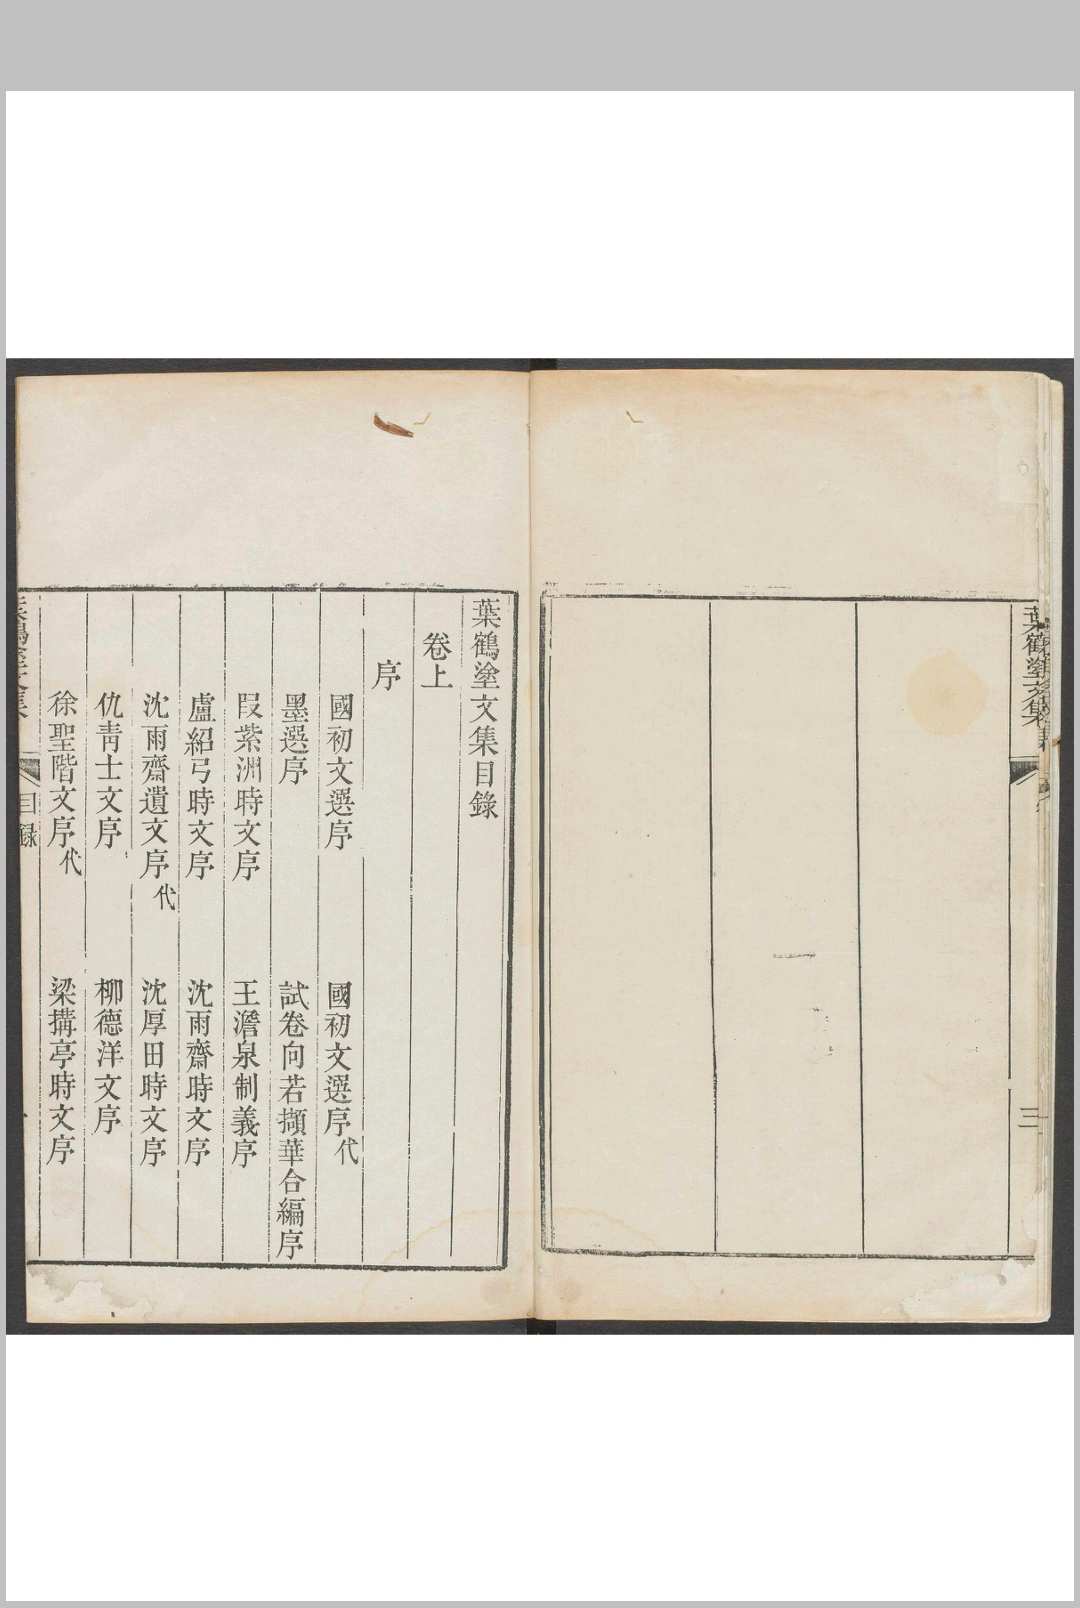 葉鶴塗文集
三
葉鶴塗文集目錄
卷上
序
國初文選序 國初文選序代
墨選序 試卷向若擷華合編序
段紫洲時文序 王澹泉制義序
盧紹弓時文序 沈雨齋時文序
沈雨齋遺文序代 沈厚田時文序
仇靑士文序 柳德洋文序
徐聖階文序代 梁搆亭時文序
目録